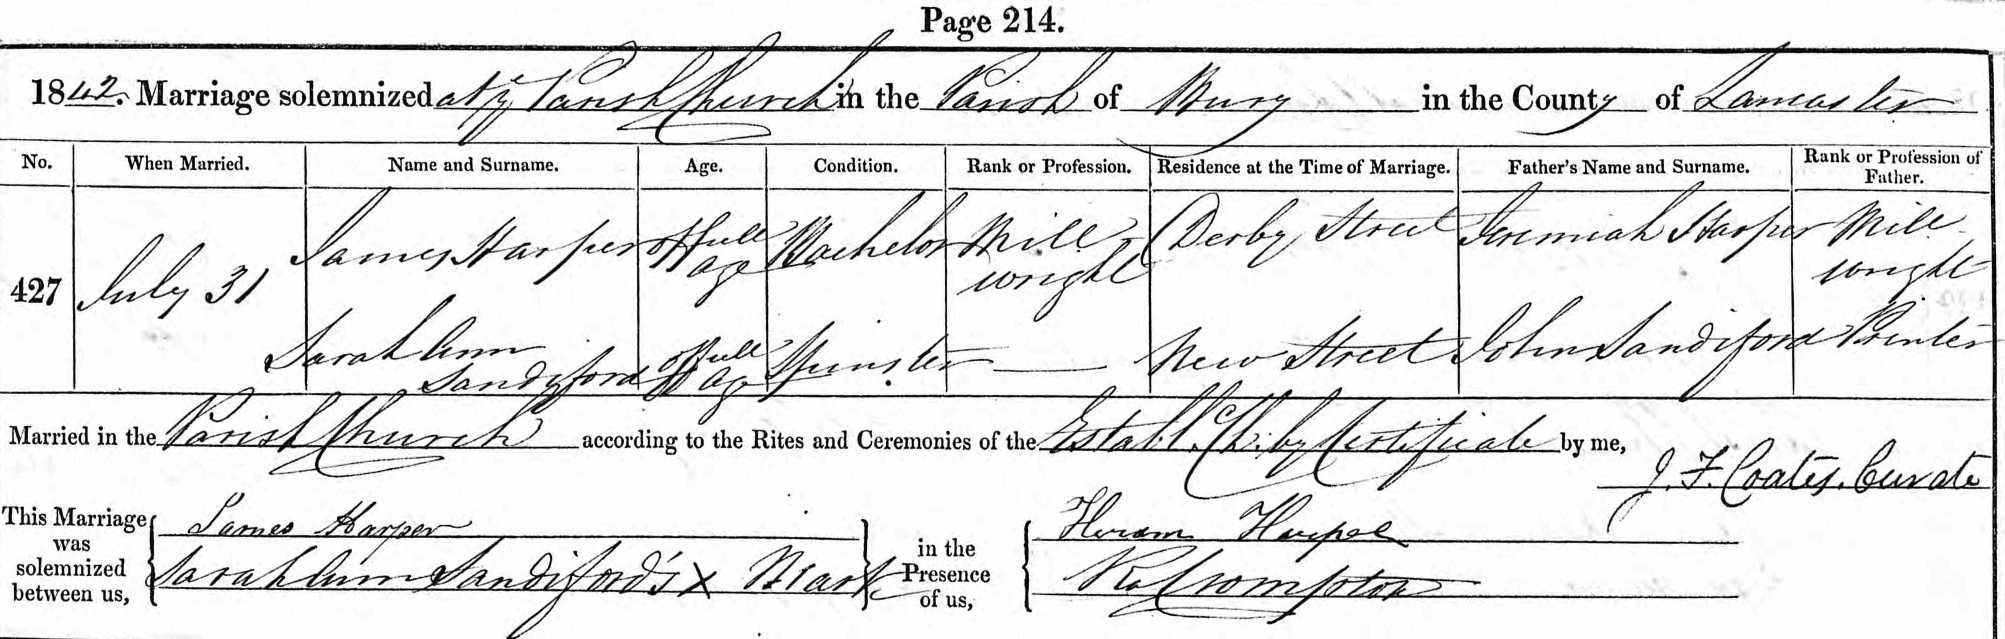 Page 214.
1842. Marriage solemnized at ye Parish Church in the Parish of Bury in the County of Lancaster
No. When Married. Name and Surname. Age. Condition. Rank or Profession. Residence at the Time of Marriage. Father's Name and Surname. Rank or Profession of Father.
427 July 31 James Harper of full age Bachelor Mill wright Derby Street Jeremiah Harper Mill wright
Sarah Ann Sandiford of full age Spinster — New Street John Sandiford Printer
Married in the Parish Church according to the Rites and Ceremonies of the Establ. Ch. by Certificate by me,
J. F. Coates. Curate
This Marriage was solemnized between us,
James Harper
Sarah Ann Sandiford's X Mark
in the Presence of us,
Hiram Harper
Ra Crompton